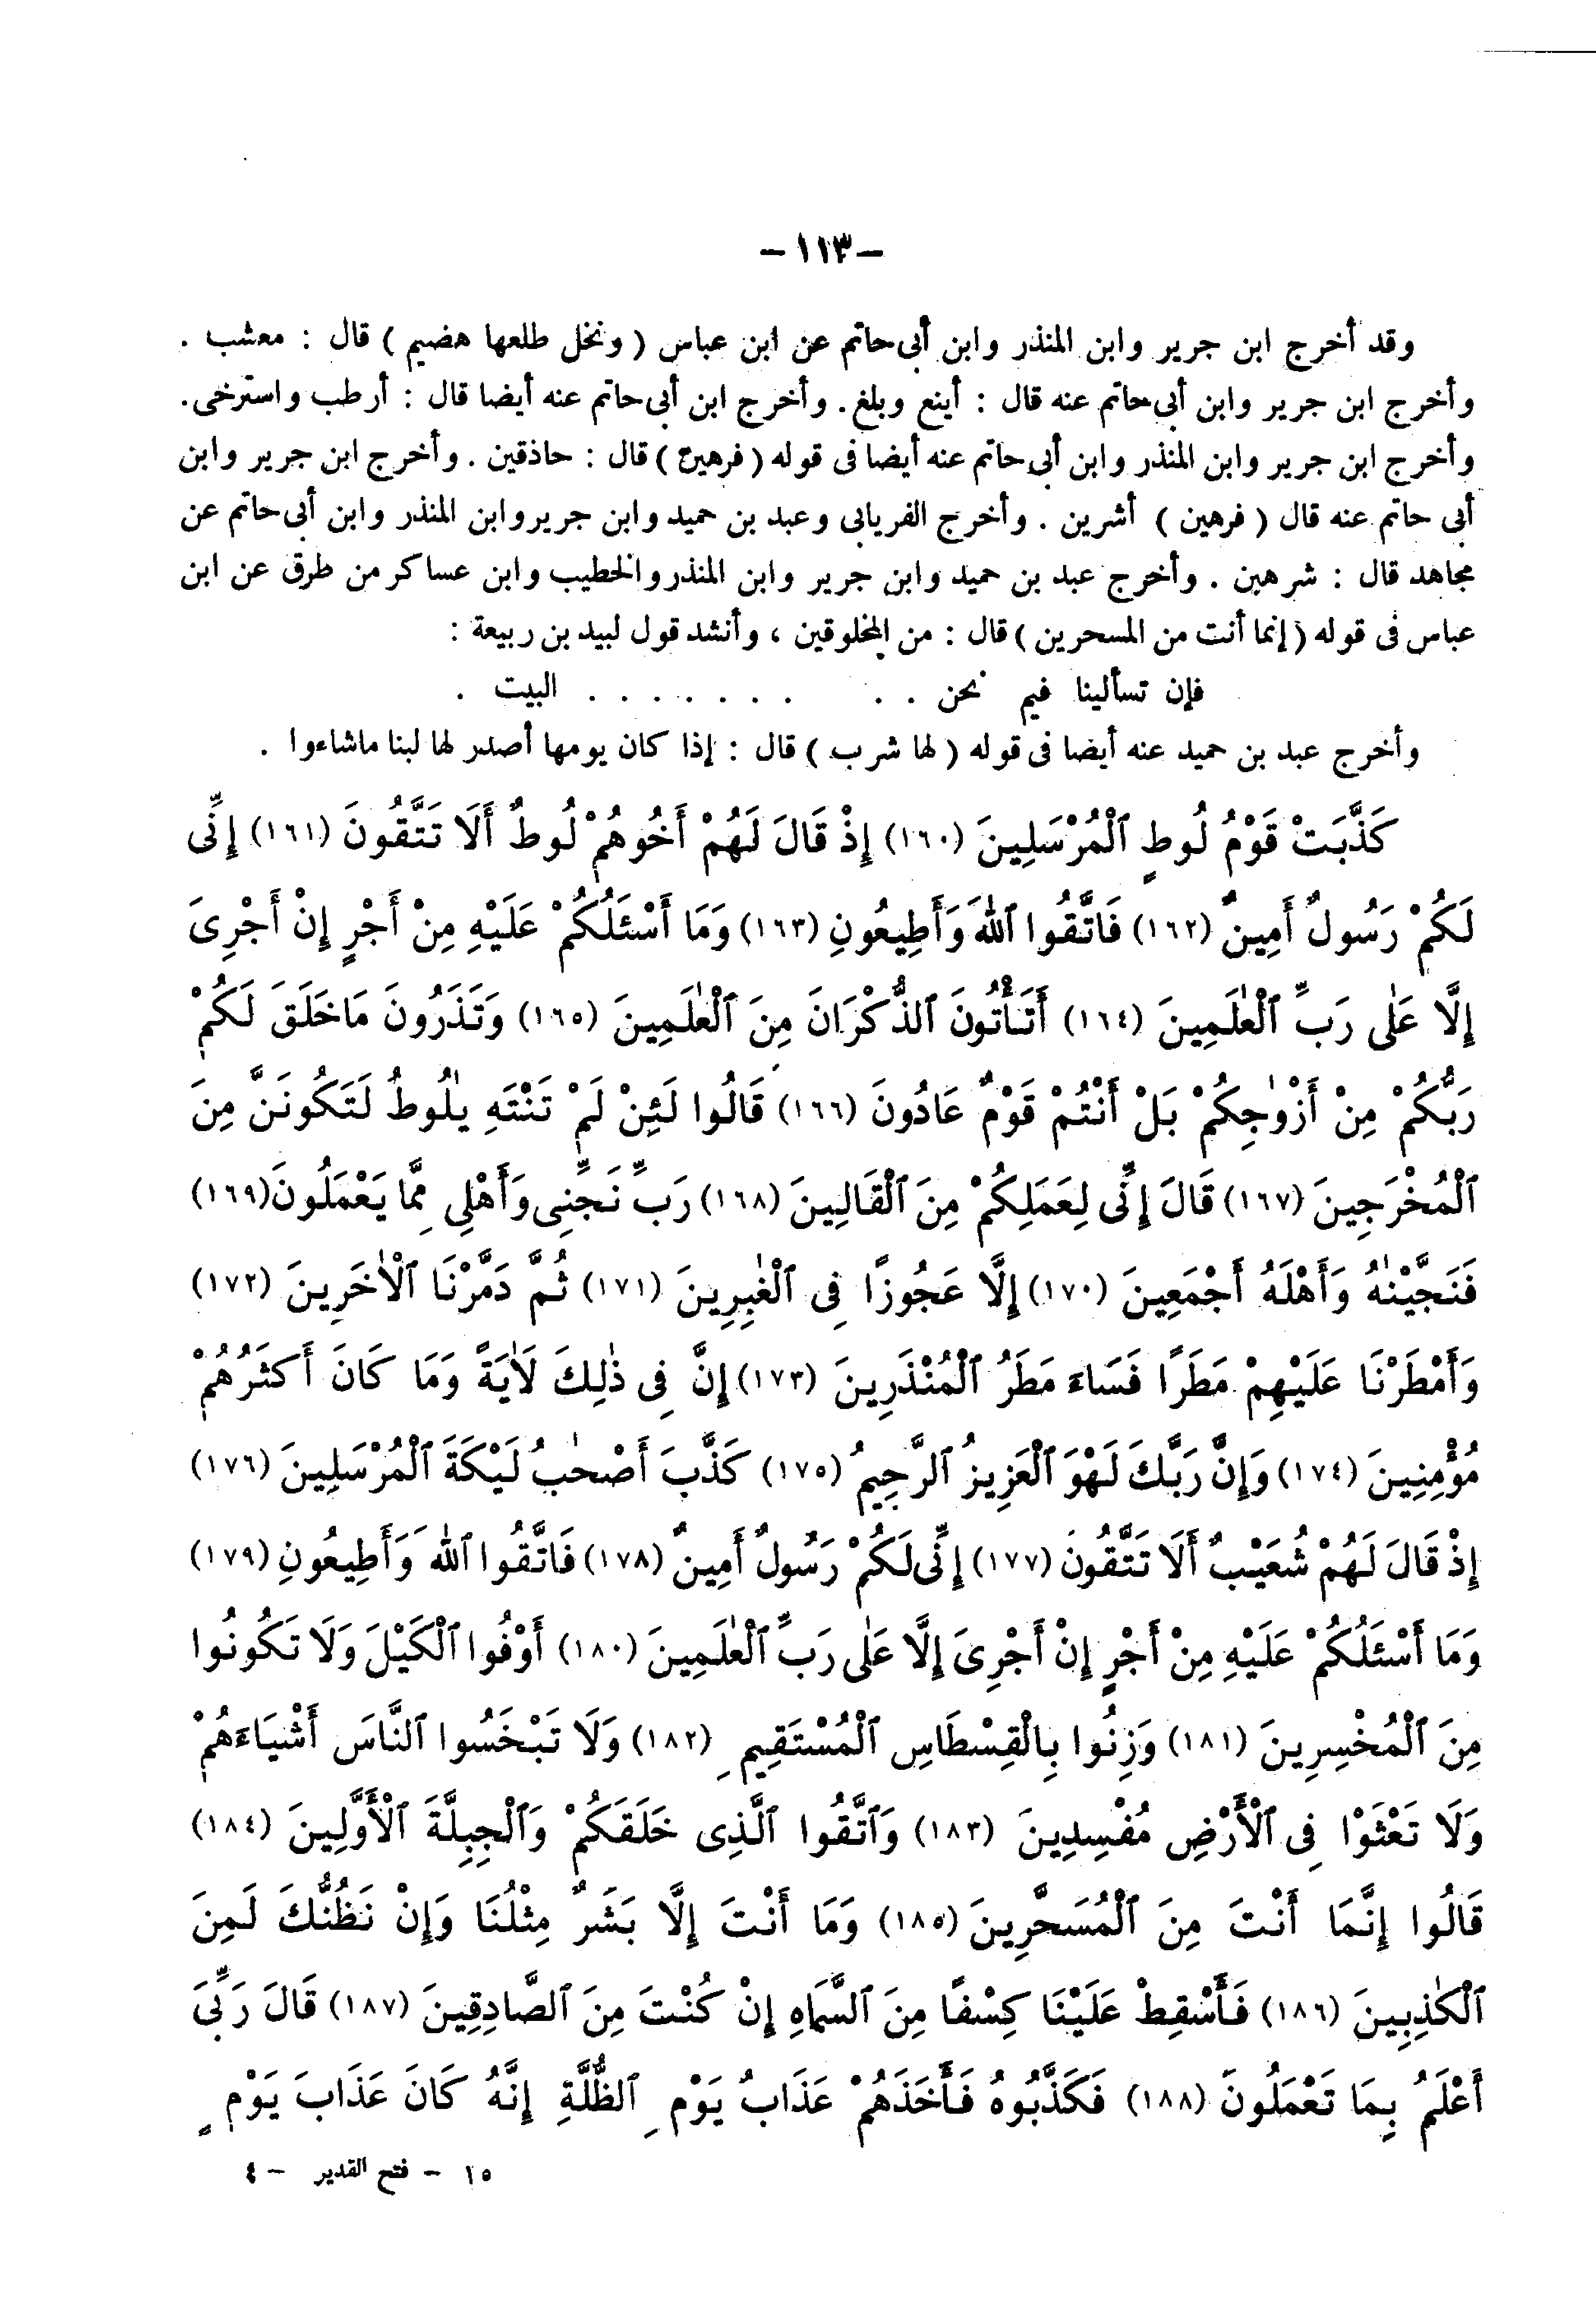 - ١١٣ -
وقد أخرج ابن جرير وابن المنذر وابن أبى حاتم عن ابن عباس ( ونخل طلعها هضيم ) قال : معشب .
وأخرج ابن جرير وابن أبى حاتم عنه قال : أينع وبلغ . وأخرج ابن أبى حاتم عنه أيضا قال : أرطب واسترخى .
وأخرج ابن جرير وابن المنذر وابن أبى حاتم عنه أيضا فى قوله ( فرهين ) قال : حاذقين . وأخرج ابن جرير وابن
أبى حاتم عنه قال ( فرهين ) أشرين . وأخرج الفريابى وعبد بن حميد وابن جرير وابن المنذر وابن أبى حاتم عن
مجاهد قال : شرهين . وأخرج عبد بن حميد وابن جرير وابن المنذر والخطيب وابن عساكر من طرق عن ابن
عباس فى قوله ( إنما أنت من المسحرين ) قال : من المخلوقين ، وأنشد قول لبيد بن ربيعة :
فإن تسألينا فيم نحن . . . . . . . . . البيت .
وأخرج عبد بن حميد عنه أيضا فى قوله ( لها شرب ) قال : إذا كان يومها أصدر لها لبنا ماشاءوا .
كَذَّبَتْ قَوْمُ لُوطٍ ٱلْمُرْسَلِينَ (١٦٠) إِذْ قَالَ لَهُمْ أَخُوهُمْ لُوطٌ أَلَا تَتَّقُونَ (١٦١) إِنِّى
لَكُمْ رَسُولٌ أَمِينٌ (١٦٢) فَاتَّقُوا ٱللّٰهَ وَأَطِيعُونِ (١٦٣) وَمَا أَسْئَلُكُمْ عَلَيْهِ مِنْ أَجْرٍ إِنْ أَجْرِىَ
إِلَّا عَلٰى رَبِّ ٱلْعٰلَمِينَ (١٦٤) أَتَأْتُونَ ٱلذُّكْرَانَ مِنَ ٱلْعٰلَمِينَ (١٦٥) وَتَذَرُونَ مَاخَلَقَ لَكُمْ
رَبُّكُمْ مِنْ أَزْوٰجِكُمْ بَلْ أَنْتُمْ قَوْمٌ عَادُونَ (١٦٦) قَالُوا لَئِنْ لَمْ تَنْتَهِ يٰلُوطُ لَتَكُونَنَّ مِنَ
ٱلْمُخْرَجِينَ (١٦٧) قَالَ إِنِّى لِعَمَلِكُمْ مِنَ ٱلْقَالِينَ (١٦٨) رَبِّ نَجِّنِى وَأَهْلِى مِمَّا يَعْمَلُونَ (١٦٩)
فَنَجَّيْنٰهُ وَأَهْلَهُ أَجْمَعِينَ (١٧٠) إِلَّا عَجُوزًا فِى ٱلْغٰبِرِينَ (١٧١) ثُمَّ دَمَّرْنَا ٱلْاٰخَرِينَ (١٧٢)
وَأَمْطَرْنَا عَلَيْهِمْ مَطَرًا فَسَاءَ مَطَرُ ٱلْمُنْذَرِينَ (١٧٣) إِنَّ فِى ذٰلِكَ لَاٰيَةً وَمَا كَانَ أَكثَرُهُمْ
مُؤْمِنِينَ (١٧٤) وَإِنَّ رَبَّكَ لَهْوَ ٱلْعَزِيزُ ٱلرَّحِيمُ (١٧٥) كَذَّبَ أَصْحٰبُ لَيْكَةَ ٱلْمُرْسَلِينَ (١٧٦)
إِذْ قَالَ لَهُمْ شُعَيْبٌ أَلَا تَتَّقُونَ (١٧٧) إِنِّى لَكُمْ رَسُولٌ أَمِينٌ (١٧٨) فَاتَّقُوا ٱللّٰهَ وَأَطِيعُونِ (١٧٩)
وَمَا أَسْئَلُكُمْ عَلَيْهِ مِنْ أَجْرٍ إِنْ أَجْرِىَ إِلَّا عَلٰى رَبِّ ٱلْعٰلَمِينَ (١٨٠) أَوْفُوا ٱلْكَيْلَ وَلَا تَكُونُوا
مِنَ ٱلْمُخْسِرِينَ (١٨١) وَزِنُوا بِالْقِسْطَاسِ ٱلْمُسْتَقِيمِ (١٨٢) وَلَا تَبْخَسُوا ٱلنَّاسَ أَشْيَاءَهُمْ
وَلَا تَعْثَوْا فِى ٱلْأَرْضِ مُفْسِدِينَ (١٨٣) وَٱتَّقُوا ٱلَّذِى خَلَقَكُمْ وَٱلْجِبِلَّةَ ٱلْأَوَّلِينَ (١٨٤)
قَالُوا إِنَّمَا أَنْتَ مِنَ ٱلْمُسَحَّرِينَ (١٨٥) وَمَا أَنْتَ إِلَّا بَشَرٌ مِثْلُنَا وَإِنْ نَظُنُّكَ لَمِنَ
ٱلْكٰذِبِينَ (١٨٦) فَأَسْقِطْ عَلَيْنَا كِسْفًا مِنَ ٱلسَّمَاءِ إِنْ كُنْتَ مِنَ ٱلصَّادِقِينَ (١٨٧) قَالَ رَبِّى
أَعْلَمُ بِمَا تَعْمَلُونَ (١٨٨) فَكَذَّبُوهُ فَأَخَذَهُمْ عَذَابُ يَوْمِ ٱلظُّلَّةِ إِنَّهُ كَانَ عَذَابَ يَوْمٍ
١٥ - فتح القدير - ٤